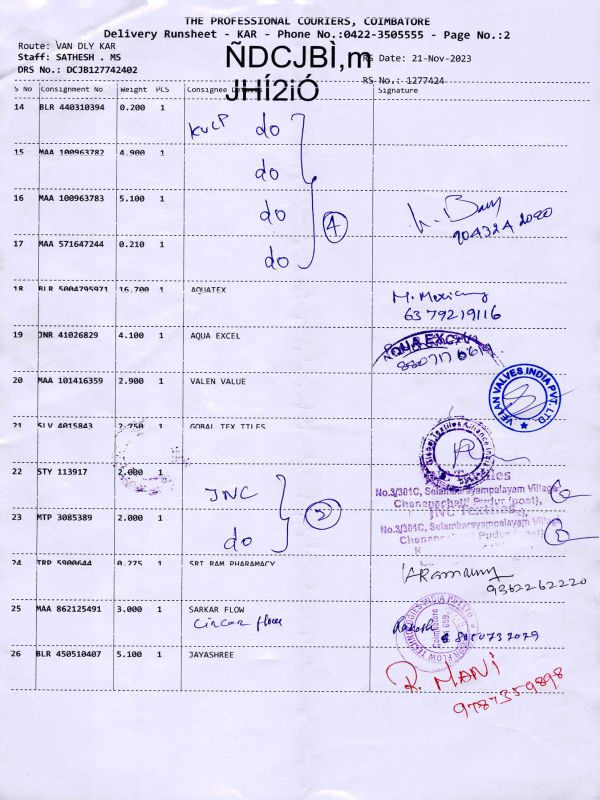 THE PROFESSIONAL COURIERS, COIMBATORE
Delivery Runsheet - KAR - Phone No.:0422-3505555 - Page No.:2
Route: VAN DLY KAR
Staff: SATHESH . MS
RS Date: 21-Nov-2023
DRS No.: DCJB127742402
ÑDCJBÌ,m
JHÍ2iÓ
RS No.: 1277424
S No Consignment No Weight PCS Consignee Signature
14 BLR 440310394 0.200 1 KVCP do
15 MAA 100963782 4.900 1 do
16 MAA 100963783 5.100 1 do
4
9043242020
17 MAA 571647244 0.210 1 do
18 BLR 5004795971 16.700 1 AQUATEX
6379219116
19 JNR 41026829 4.100 1 AQUA EXCEL
20 MAA 101416359 2.900 1 VALEN VALUE
VELAN VALVES INDIA PVT. LTD.
21 SLV 4015843 2.250 1 GOBAL TEX TILES
22 STY 113917 2.000 1 JNC
2
No.3/301C, Selambarayampalayam Village
Chenapachatti Pudur (post),
JNC Textiles
23 MTP 3085389 2.000 1 do
No.3/301C, Selambarayampalayam Village
24 TRP 5900644 0.275 1 SRI RAM PHARAMACY
9362262220
25 MAA 862125491 3.000 1 SARKAR FLOW
Circor flow
26 BLR 450510407 5.100 1 JAYASHREE
R. MANI
9787359898